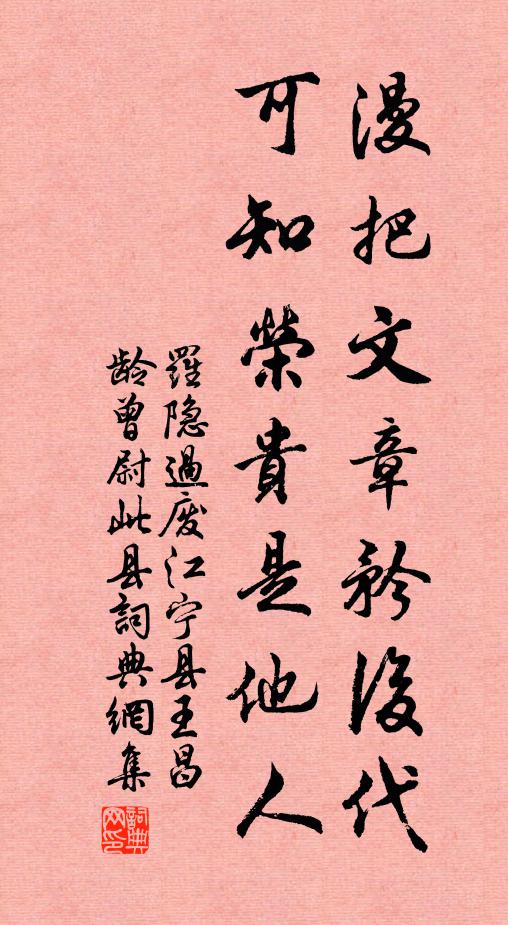 漫把文章矜後代
可知榮貴是他人
羅隐過廢江宁县王昌
龄曾尉此县詞典網集
詞典网印